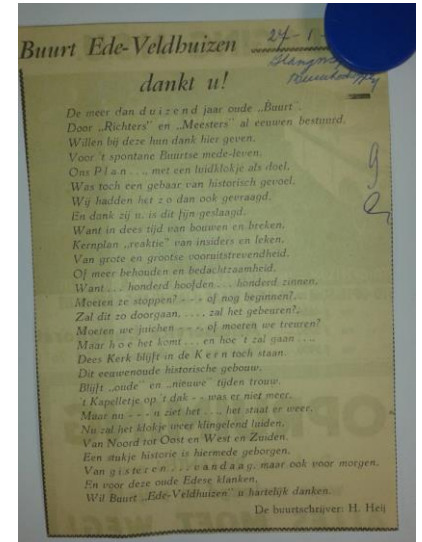 Buurt Ede-Veldhuizen
27-1-
dankt u!
De meer dan duizend jaar oude „Buurt".
Door „Richters" en „Meesters" al eeuwen bestuurd.
Willen bij deze hun dank hier geven.
Voor 't spontane Buurtse mede-leven.
Ons Plan . . . . met een luidklokje als doel,
Was toch een gebaar van historisch gevoel.
Wij hadden het zo dan ook gevraagd.
En dank zij u. is dit fijn geslaagd.
Want in dees tijd van bouwen en breken,
Kernplan „reaktie" van insiders en leken,
Van grote en grootse vooruitstrevendheid.
Of meer behouden en bedachtzaamheid.
Want . . . honderd hoofden . . . honderd zinnen,
Moeten ze stoppen? - - - of nog beginnen?,
Zal dit zo doorgaan, . . . . zal het gebeuren?,
Moeten we juichen - - -, of moeten we treuren?
Maar hoe het komt . . . en hoe 't zal gaan . . . .
Dees Kerk blijft in de Kern toch staan.
Dit eeuwenoude historische gebouw.
Blijft „oude" en „nieuwe" tijden trouw.
't Kapelletje op 't dak - - was er niet meer.
Maar nu - - - n ziet het . . . . het staat er weer.
Nu zal het klokje weer klingelend luiden,
Van Noord tot Oost en West en Zuiden.
Een stukje historie is hiermede geborgen,
Van gisteren . . . vandaag, maar ook voor morgen,
En voor deze oude Edese klanken,
Wil Buurt „Ede-Veldhuizen" u hartelijk danken.
De buurtschrijver: H. Heij